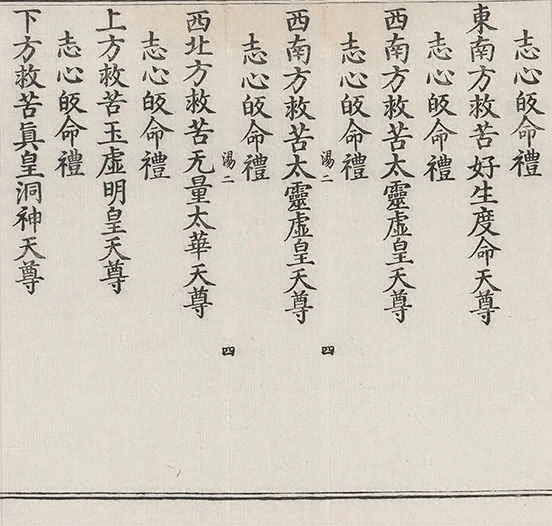 志心皈命禮
東南方救苦好生度命天尊
志心皈命禮
西南方救苦太靈虛皇天尊
志心皈命禮
湯二
四
西南方救苦太靈虛皇天尊
志心皈命禮
湯二
四
西北方救苦无量太華天尊
志心皈命禮
上方救苦玉虛明皇天尊
志心皈命禮
下方救苦眞皇洞神天尊